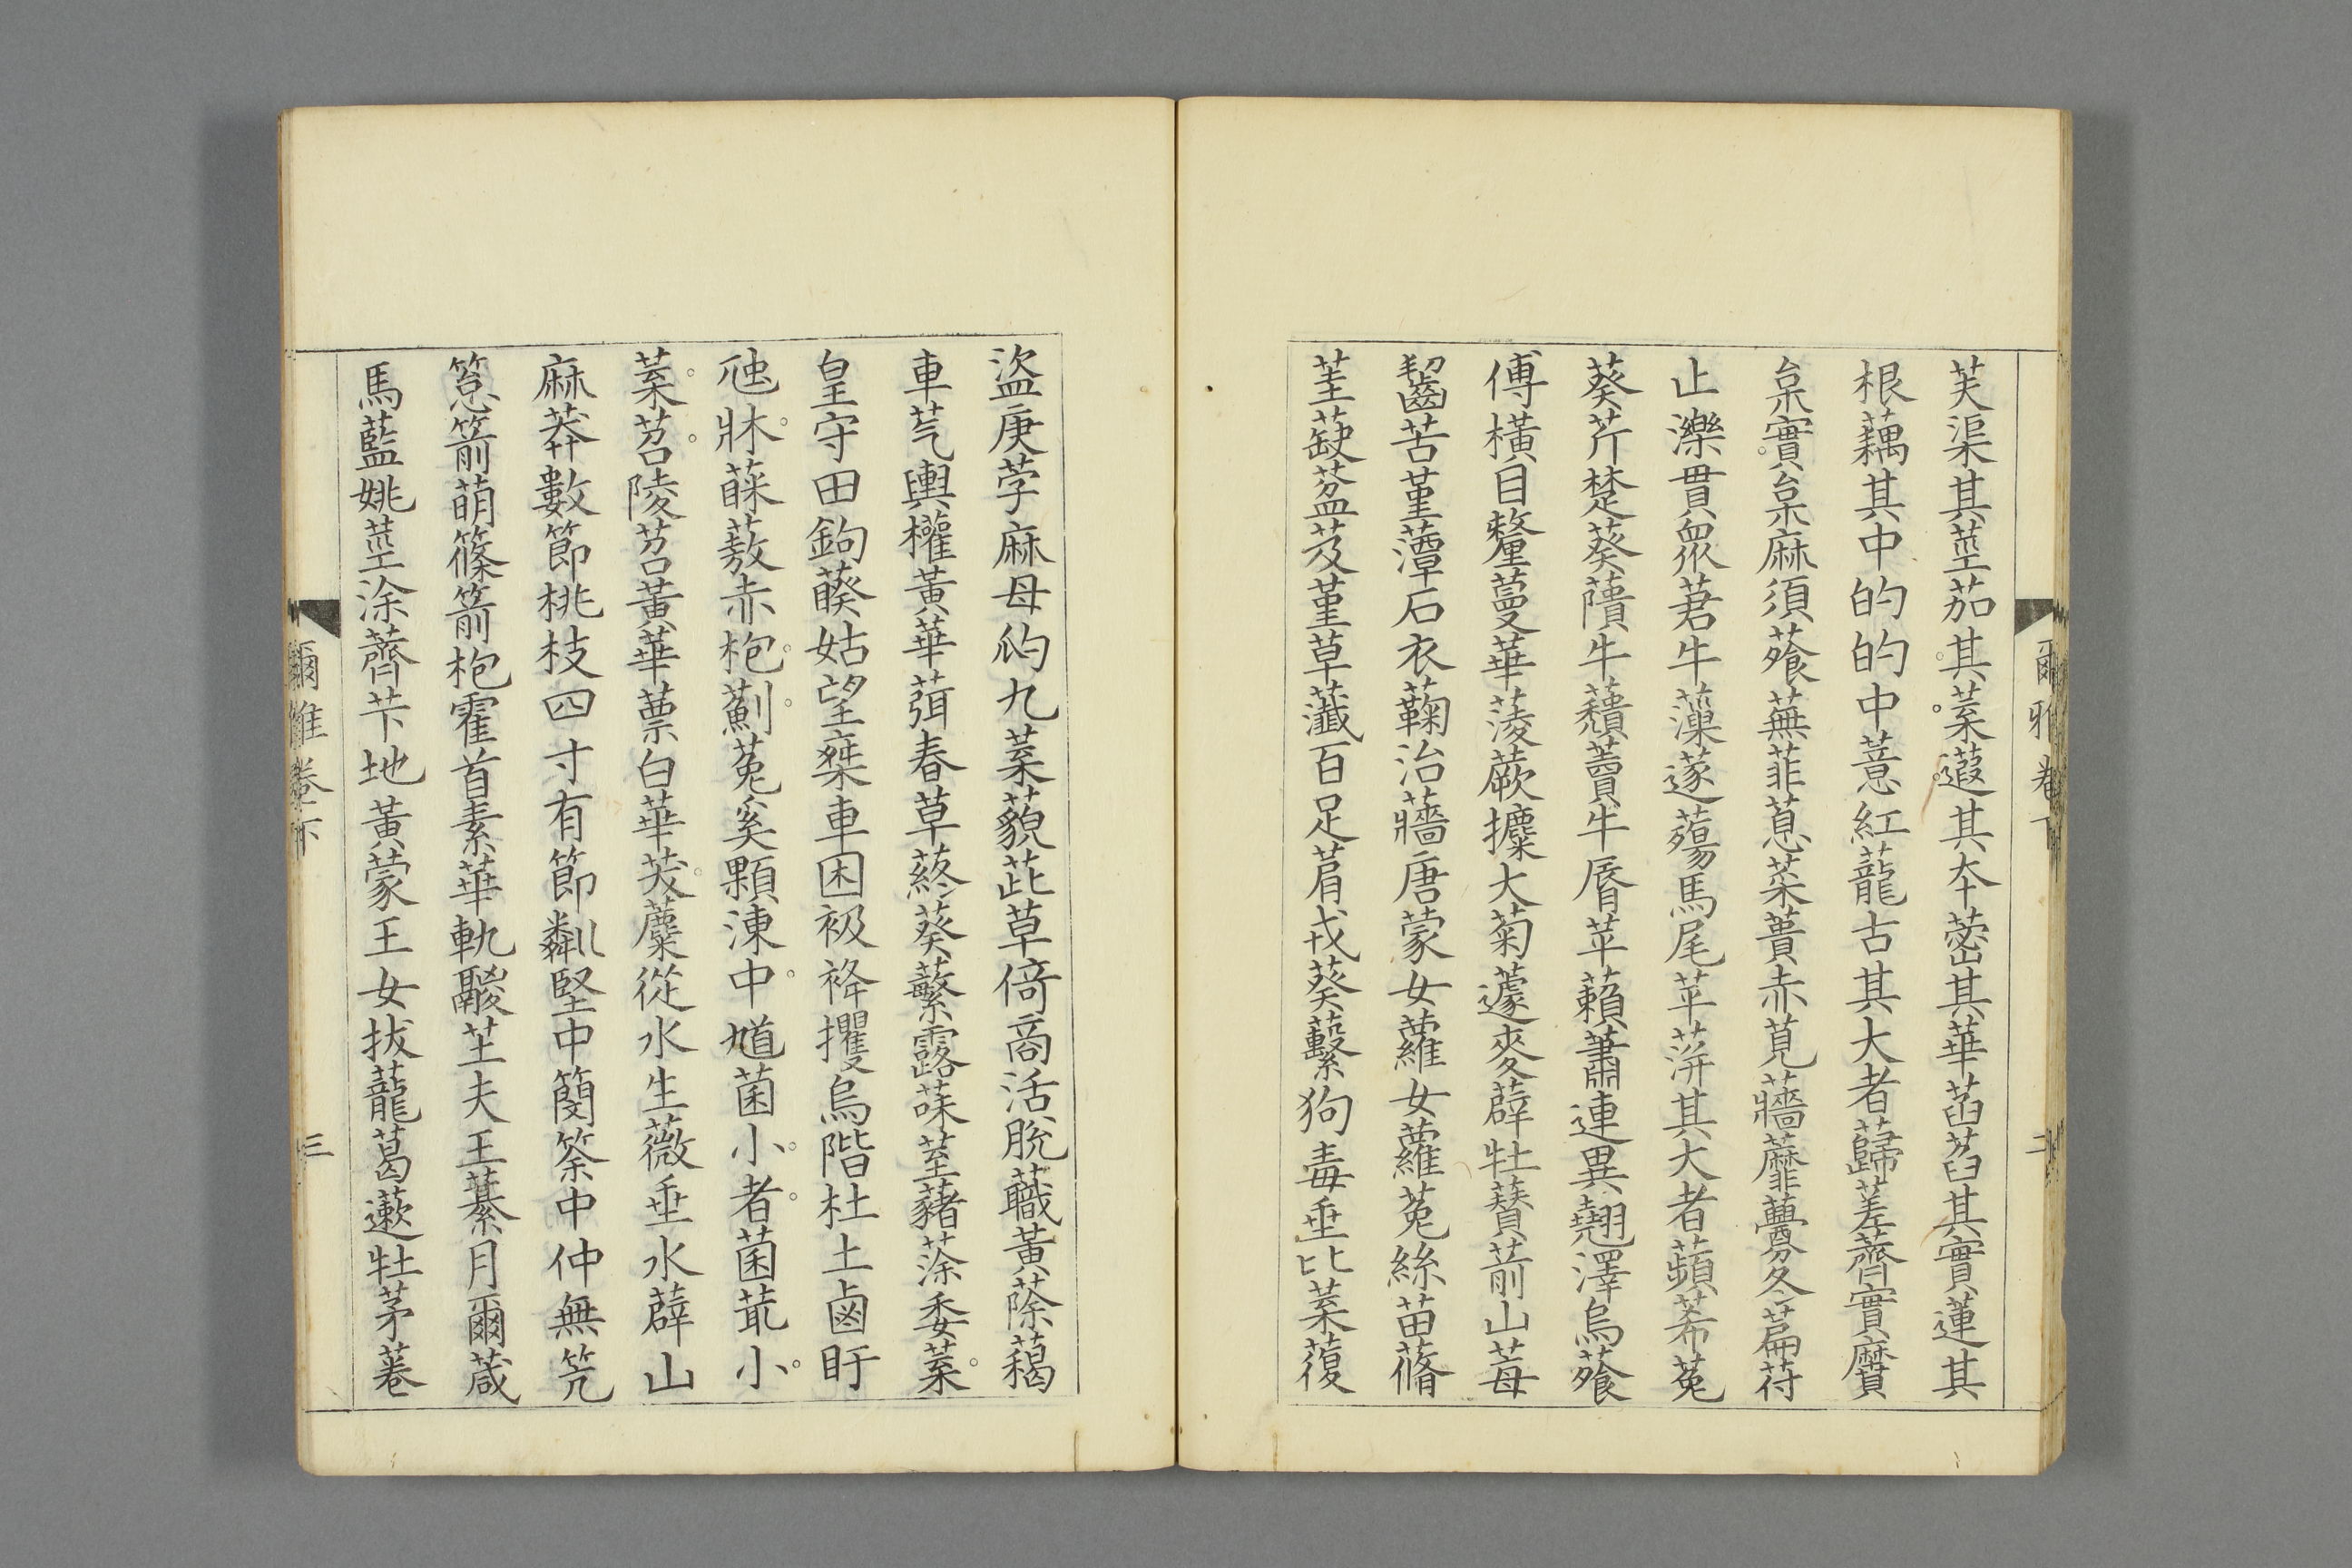 爾雅卷下 二
芙渠其莖茄其葉蕸其本蔤其華菡萏其實蓮其
根藕其中的的中薏紅蘢古其大者蘬差薺實黂
枲實枲麻須薞蕪菲蒠菜蕢赤莧蘠蘼虋冬萹苻
止濼貫眾莙牛薻蓫薚馬尾苹蓱其大者蘋莃菟
葵芹楚葵藬牛蘈藚牛脣苹藾蕭連異翹澤烏薞
傅橫目釐蔓華菱蕨攗大菊蘧麥薜牡䕺葥山莓
齧苦堇藫石衣蘜治蘠唐蒙女蘿女蘿菟絲苗蓨
茥蒛葐芨堇草虃百足菺戎葵蘻狗毒垂比葉蕧
盜庚荢麻母瓝九葉藐茈草倚商活脫蘵黃蒢藒
車芞輿權黃華葞春草蔠葵蘩露菋荎藸蒤委葉
皇守田鉤藈姑望椉車困衱袶攫烏階杜土鹵盱
虺牀蔝蔜赤枹薊菟奚顆涷中馗菌小者菌菆小
葉苕陵苕黃華蔈白華茇蘪從水生薇垂水薜山
麻莽數節桃枝四寸有節粼堅中簢筡中仲無笐
䈚箭萌篠箭枹霍首素華軌鬷芏夫王藄月爾葴
馬藍姚莖涂薺芐地黃蒙王女拔蘢葛藗牡茅菤
爾雅卷下 三